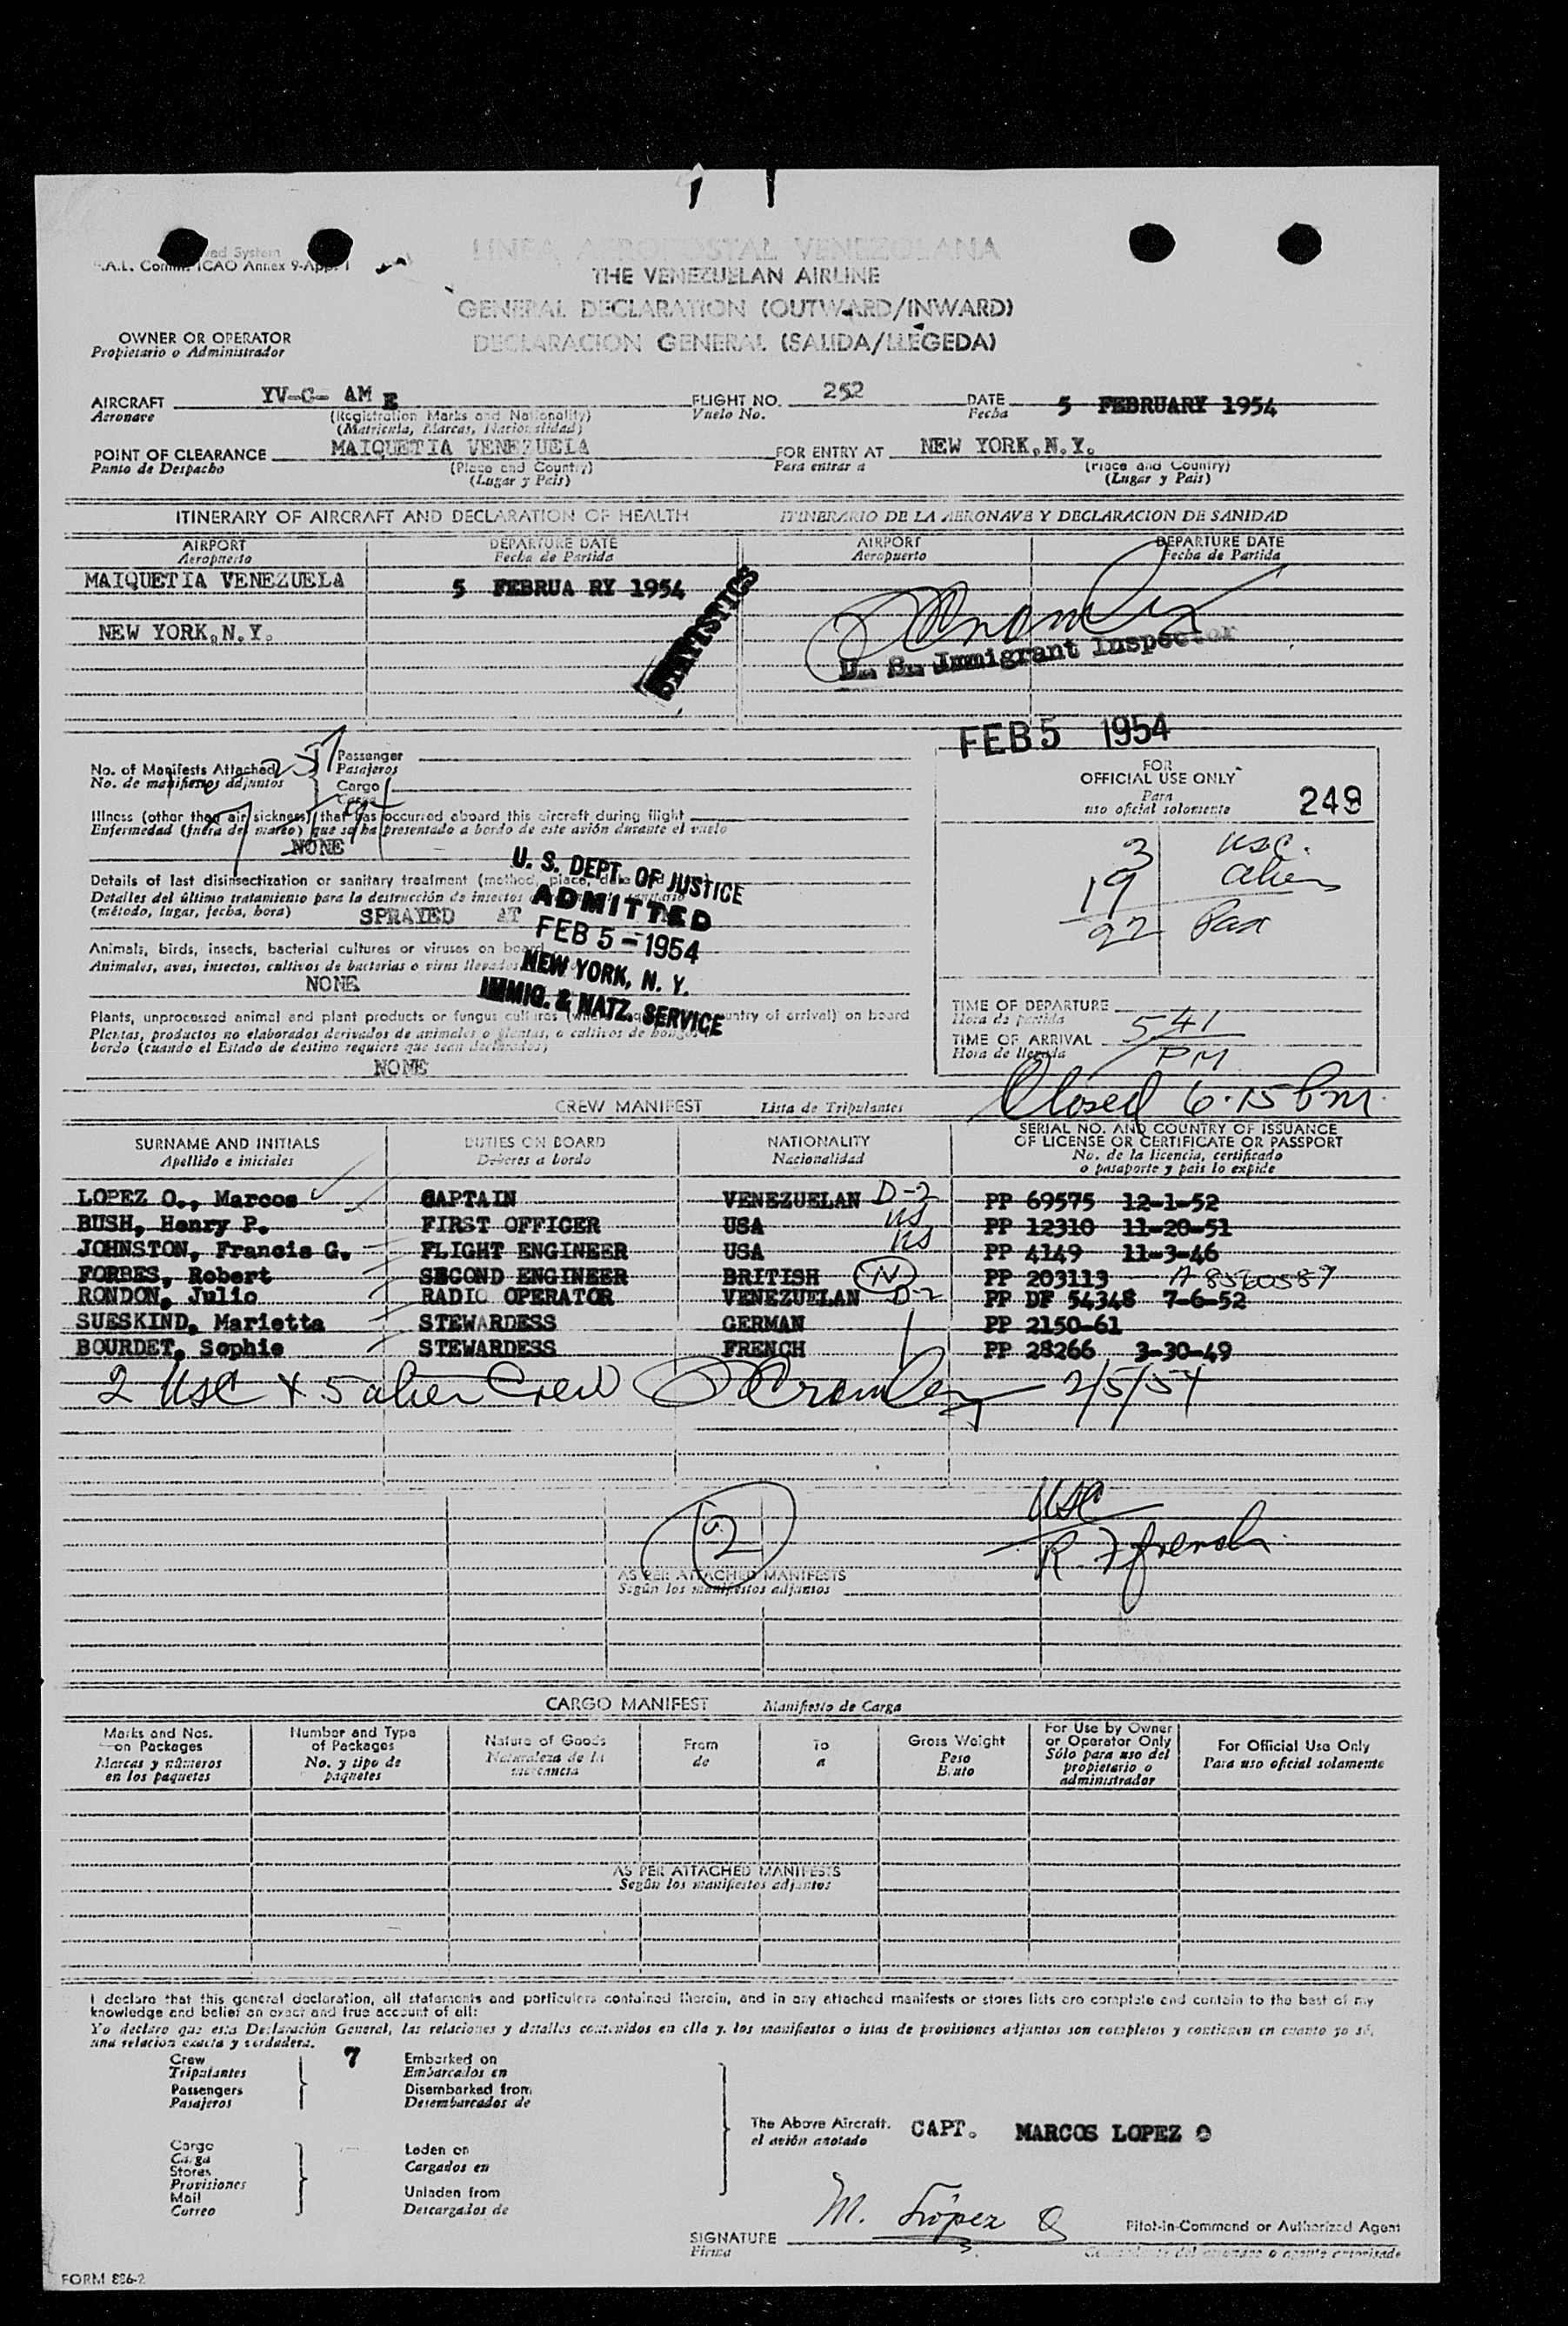 LINEA AEROPOSTAL VENEZOLANA
ICAO Annex 9-App. 1
THE VENEZUELAN AIRLINE
GENERAL DECLARATION (OUTWARD/INWARD)
DECLARACION GENERAL (SALIDA/LLEGEDA)
OWNER OR OPERATOR
Propietario o Administrador
AIRCRAFT YV-C- AM E FLIGHT NO. 252 DATE 5 FEBRUARY 1954
Aeronave (Registration Marks and Nationality) Vuelo No. Fecha
(Matricula, Marcas, Nacionalidad)
POINT OF CLEARANCE MAIQUETIA VENEZUELA FOR ENTRY AT NEW YORK,N.Y.
Punto de Despacho (Place and Country) Para entrar a (Place and Country)
(Lugar y Pais) (Lugar y Pais)
ITINERARY OF AIRCRAFT AND DECLARATION OF HEALTH ITINERARIO DE LA AERONAVE Y DECLARACION DE SANIDAD
AIRPORT DEPARTURE DATE AIRPORT DEPARTURE DATE
Aeropuerto Fecha de Partida Aeropuerto Fecha de Partida
MAIQUETIA VENEZUELA 5 FEBRUA RY 1954
STATISTICS
NEW YORK,N.Y.
U. S. Immigrant Inspector
FEB 5 1954
No. of Manifests Attached Passenger
No. de manifiestos adjuntos Pasajeros
Cargo
Carga
FOR
OFFICIAL USE ONLY
Para
uso oficial solamente
249
Illness (other than air sickness) that has occurred aboard this aircraft during flight
Enfermedad (fuera del mareo) que se ha presentado a bordo de este avión durante el vuelo
NONE
3 USC.
19 alien
22 Pax
Details of last disinsectization or sanitary treatment (method, place, date
Detalles del último tratamiento para la destrucción de insectos
(método, lugar, fecha, hora) SPRAYED AT
U. S. DEPT. OF JUSTICE
ADMITTED
FEB 5 - 1954
NEW YORK, N. Y.
IMMIG. & NATZ. SERVICE
Animals, birds, insects, bacterial cultures or viruses on board
Animales, aves, insectos, cultivos de bacterias o virus llevados
NONE
Plants, unprocessed animal and plant products or fungus cultures country of arrival) on board
Plantas, productos no elaborados derivados de animales o plantas, o cultivos de hongos
bordo (cuando el Estado de destino requiere que sean declarados)
NONE
TIME OF DEPARTURE
Hora de partida
TIME OF ARRIVAL 541 PM
Hora de llegada
Closed 6.15 pm.
CREW MANIFEST Lista de Tripulantes
SURNAME AND INITIALS DUTIES ON BOARD NATIONALITY SERIAL NO. AND COUNTRY OF ISSUANCE
OF LICENSE OR CERTIFICATE OR PASSPORT
Apellido e iniciales Deberes a bordo Nacionalidad No. de la licencia, certificado
o pasaporte y pais lo expide
LOPEZ O., Marcos CAPTAIN VENEZUELAN D-2 PP 69575 12-1-52
BUSH, Henry P. FIRST OFFICER USA US PP 12310 11-20-51
JOHNSTON, Francis G. FLIGHT ENGINEER USA US PP 4149 11-3-46
FORBES, Robert SECOND ENGINEER BRITISH N PP 203113 A 8560587
RONDON, Julio RADIO OPERATOR VENEZUELAN D-2 PP DF 54348 7-6-52
SUESKIND, Marietta STEWARDESS GERMAN PP 2150-61
BOURDET, Sophie STEWARDESS FRENCH PP 28266 3-30-49
2 USC & 5 alien Crew 2/5/54
2
USC
AS PER ATTACHED MANIFESTS
Según los manifiestos adjuntos
CARGO MANIFEST Manifiesto de Carga
Marks and Nos. on Packages Number and Type of Packages Nature of Goods From To Gross Weight For Use by Owner or Operator Only For Official Use Only
Marcas y números en los paquetes No. y tipo de paquetes Naturaleza de la mercancia de a Peso Bruto Sólo para uso del propietario o administrador Para uso oficial solamente
AS PER ATTACHED MANIFESTS
Según los manifiestos adjuntos
I declare that this general declaration, all statements and particulars contained therein, and in any attached manifests or stores lists are complete and contain to the best of my
knowledge and belief an exact and true account of all:
Yo declaro que esta Declaración General, las relaciones y detalles contenidos en ella y los manifiestos o istas de provisiones adjuntos son completos y contienen en cuanto yo sé,
una relación exacta y verdadera.
Crew 7 Embarked on
Tripulantes Embarcados en
Passengers Disembarked from
Pasajeros Desembarcados de
The Above Aircraft. CAPT. MARCOS LOPEZ O
el avión anotado
Cargo Laden on
Carga Cargados en
Stores
Provisiones
Mail Unladen from
Correo Descargados de
M. López O
SIGNATURE Pilot-in-Command or Authorized Agent
Firma
FORM 886-2